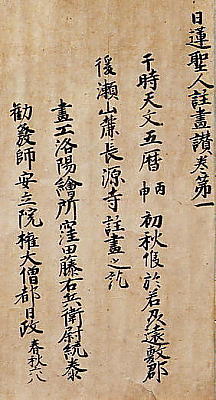 日蓮聖人註畫讃卷第一
于時天文五暦丙申初秋候於若及遠敷郡
後瀬山麓長源寺註畫之訖
畫工洛陽繪所窪田藤右兵衛尉統泰
勸發師安立院權大僧都日政 春秋八